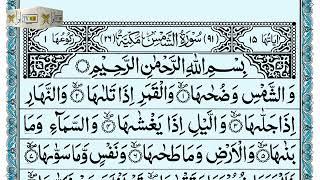 اٰیَاتُهَا ١٥ (٩١) سُوْرَةُ الشَّمْسِ مَكِّيَّةٌ (٢٦) رُكُوْعُهَا ١
بِسْمِ اللّٰهِ الرَّحْمٰنِ الرَّحِيْمِ
وَالشَّمْسِ وَضُحٰىهَا ۝١ وَالْقَمَرِ اِذَا تَلٰىهَا ۝٢ وَالنَّهَارِ
اِذَا جَلّٰىهَا ۝٣ وَالَّيْلِ اِذَا يَغْشٰىهَا ۝٤ وَالسَّمَآءِ وَمَا
بَنٰىهَا ۝٥ وَالْاَرْضِ وَمَا طَحٰىهَا ۝٦ وَنَفْسٍ وَّمَا سَوّٰىهَا ۝٧